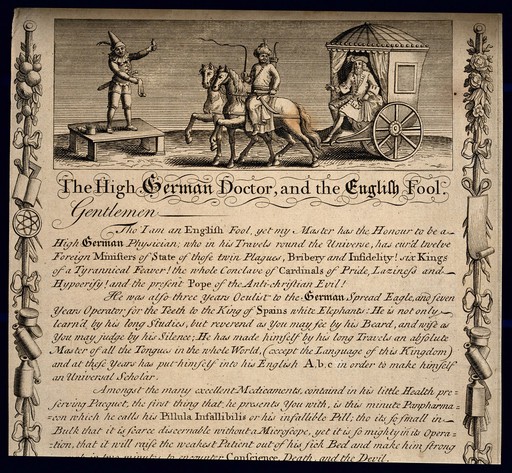 The High German Doctor, and the English Fool.
Gentlemen
Tho I am an English Fool, yet my Master has the Honour to be a
High German Physician; who in his Travels round the Universe, has cur'd twelve
Foreign Ministers of State of those twin Plagues, Bribery and Infidelity! six Kings
of a Tyrannical Feaver! the whole Conclave of Cardinals of Pride, Laziness and
Hypocrisy! and the present Pope of the Anti-christian Evil!
He was also three years Oculist to the German Spread Eagle, and seven
Years Operator for the Teeth to the King of Spains white Elephants: He is not only
learn'd by his long Studies, but reverend as You may see by his Beard, and wise as
You may judge by his Silence; He has made himself by his long Travels an absolute
Master of all the Tongues in the whole World, (except the Language of this Kingdom)
and at these Years has put himself into his English A, b, c in order to make himself
an Universal Scholar.
Amongst the many excellent Medicaments, contain'd in his little Health pre=
serving Pacquet, the first thing that he presents You with, is this minute Panpharma=
con which he calls his Pillula Infallibilis or his infallible Pill, tho' its so small in
Bulk that it is scarce discernable without a Microscope, yet it is so mighty in its Opera=
tion, that it will raise the weakest Patient out of his sick Bed and make him strong
in two minutes to encounter Conscience, Death, and the Devil.